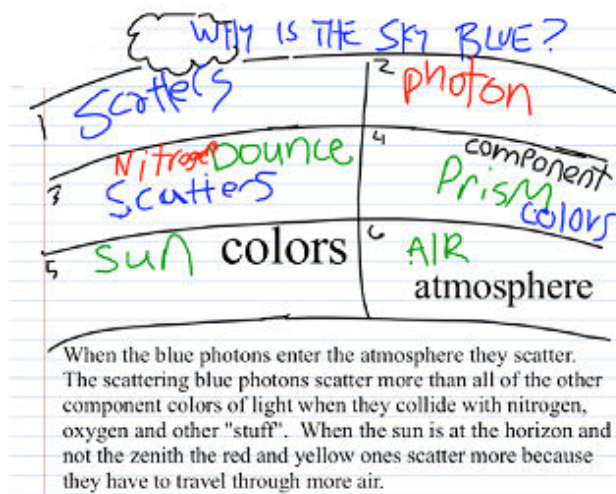 WHY IS THE SKY BLUE?
1 Scatters
2 Photon
3 Nitrogen Bounce
Scatters
4 component
Prism
colors
5 Sun colors
6 AIR
atmosphere
When the blue photons enter the atmosphere they scatter.
The scattering blue photons scatter more than all of the other
component colors of light when they collide with nitrogen,
oxygen and other "stuff". When the sun is at the horizon and
not the zenith the red and yellow ones scatter more because
they have to travel through more air.